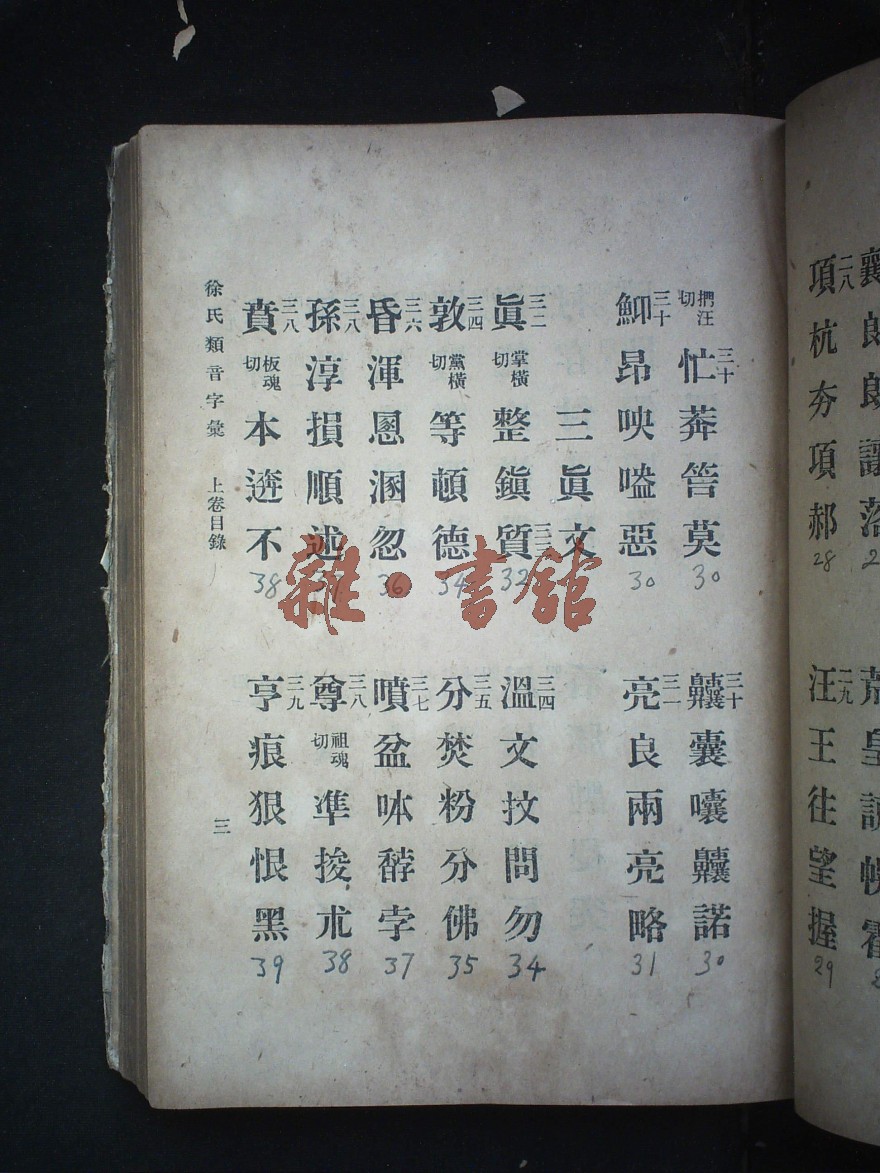 捫汪切 忙三十 莽 莫 30
三十 囊 囔 諾 30
三十 昂 咉 嗑 惡 30
亮三一 良 兩 亮 略 31
三眞文
眞三二 掌橫切 整 鎭 質 32
溫三四 文 抆 問 勿 34
敦三四 黨橫切 等 頓 德 34
分三五 焚 粉 分 佛 35
昏三六 渾 慁 溷 忽 36
噴三七 盆 呠 孛 37
孫三八 淳 損 順 述
尊三八 祖魂切 準 捘 朮 38
賁三八 板魂切 本 逩 不 38
亨三九 痕 狠 恨 黑 39
徐氏類音字彙 上卷目錄 三
襄 朗 朗 讓 落
項二八 杭 夯 項 郝 28
汪二九 王 往 望 握 29
雜·書館